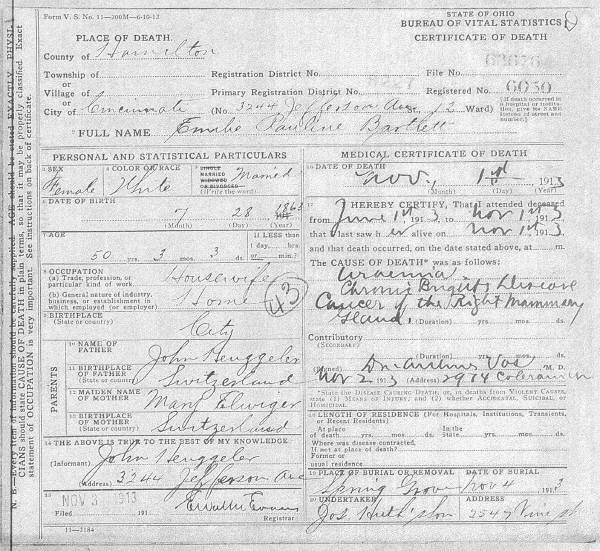 Form V. S. No. 11—200M—6-10-12
STATE OF OHIO
BUREAU OF VITAL STATISTICS
CERTIFICATE OF DEATH
PLACE OF DEATH.
County of Hamilton
Township of
Registration District No.
File No. 63676
Village of
Primary Registration District No.
Registered No. 6050
or
City of Cincinnati (No. 3244 Jefferson Ave St., 12 Ward)
(If death occurred in a hospital or institution, give its NAME instead of street and number.)
FULL NAME Emilie Pauline Bartlett
PERSONAL AND STATISTICAL PARTICULARS
3 SEX Female
4 COLOR OR RACE White
5 SINGLE MARRIED WIDOWED OR DIVORCED (Write the word) Married
6 DATE OF BIRTH
7 28 1863
(Month) (Day) (Year)
7 AGE
50 yrs. 3 mos. 3 ds.
If LESS than 1 day, hrs. or min.?
8 OCCUPATION
(a) Trade, profession, or particular kind of work Housewife
(b) General nature of industry, business, or establishment in which employed (or employer) Home
43
9 BIRTHPLACE
(State or country) City
PARENTS
10 NAME OF FATHER John Henggeler
11 BIRTHPLACE OF FATHER (State or country) Switzerland
12 MAIDEN NAME OF MOTHER Mary
13 BIRTHPLACE OF MOTHER (State or country) Switzerland
14 THE ABOVE IS TRUE TO THE BEST OF MY KNOWLEDGE
(Informant) John Henggeler
(Address) 3244 Jefferson Ave
15 NOV 3 1913
Filed 191
Registrar
11—2184
MEDICAL CERTIFICATE OF DEATH
16 DATE OF DEATH
Nov. 1st 1913
(Month) (Day) (Year)
17 I HEREBY CERTIFY, That I attended deceased
from June 1st, 1913 to Nov 1st 1913
that I last saw her alive on Nov 1st 1913
and that death occurred, on the date stated above, at m.
The CAUSE OF DEATH* was as follows:
Uraemia
Chronic Brights Disease
Cancer of the Right Mammary
Gland, (Duration) yrs. mos. ds.
Contributory
(SECONDARY)
(Duration) yrs. mos. ds.
(Signed) Dr. Vos M. D.
Nov 2 1913 (Address) 2974 Colerain
*State the DISEASE CAUSING DEATH; or, in deaths from VIOLENT CAUSES, state (1) MEANS OF INJURY; and (2) whether ACCIDENTAL, SUICIDAL, or HOMICIDAL.
18 LENGTH OF RESIDENCE (For Hospitals, Institutions, Transients, or Recent Residents)
At place of death yrs. mos. ds. State yrs. mos. ds.
Where was disease contracted, If not at place of death?
Former or usual residence
19 PLACE OF BURIAL OR REMOVAL DATE OF BURIAL
Spring Grove Nov 4 1913
20 UNDERTAKER ADDRESS
Jos. 2549 Vine st
N. B.—Every item of information should be carefully supplied. AGE should be stated EXACTLY. PHYSICIANS should state CAUSE OF DEATH in plain terms, so that it may be properly classified. Exact statement of OCCUPATION is very important. See instructions on back of certificate.